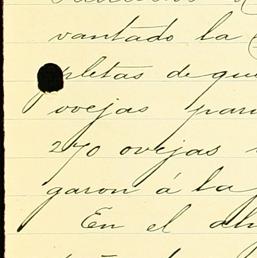 vantado la
pletas de que
ovejas para
270 ovejas
garon á la
En el